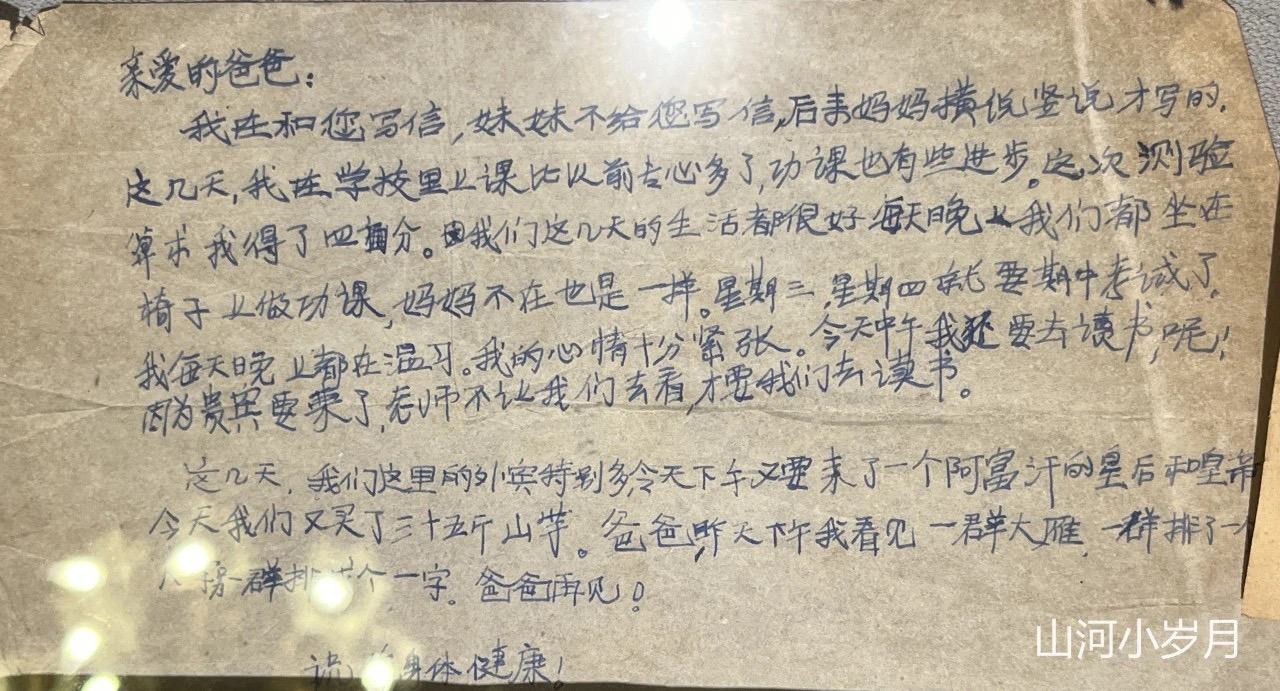 亲爱的爸爸：
我在和您写信，妹妹不给您写信，后来妈妈横说竖说才写的，
这几天，我在学校里上课比以前专心多了，功课也有些进步。这次测验
算术我得了四分。我们这几天的生活都很好每天晚上我们都坐在
椅子上做功课，妈妈不在也是一样。星期三，星期四就要期中考试了，
我每天晚上都在温习。我的心情十分紧张。今天中午我还要去读书，呢！
因为贵宾要来了，老师不让我们去看，才要我们去读书。
这几天，我们这里的外宾特别多，今天下午又要来了一个阿富汗的皇后和皇帝
今天我们又买了三十五斤山芋。爸爸，昨天下午我看见一群大雁，一群排了一个
群排 个一字。爸爸再见！
祝 身体健康！
山河小岁月